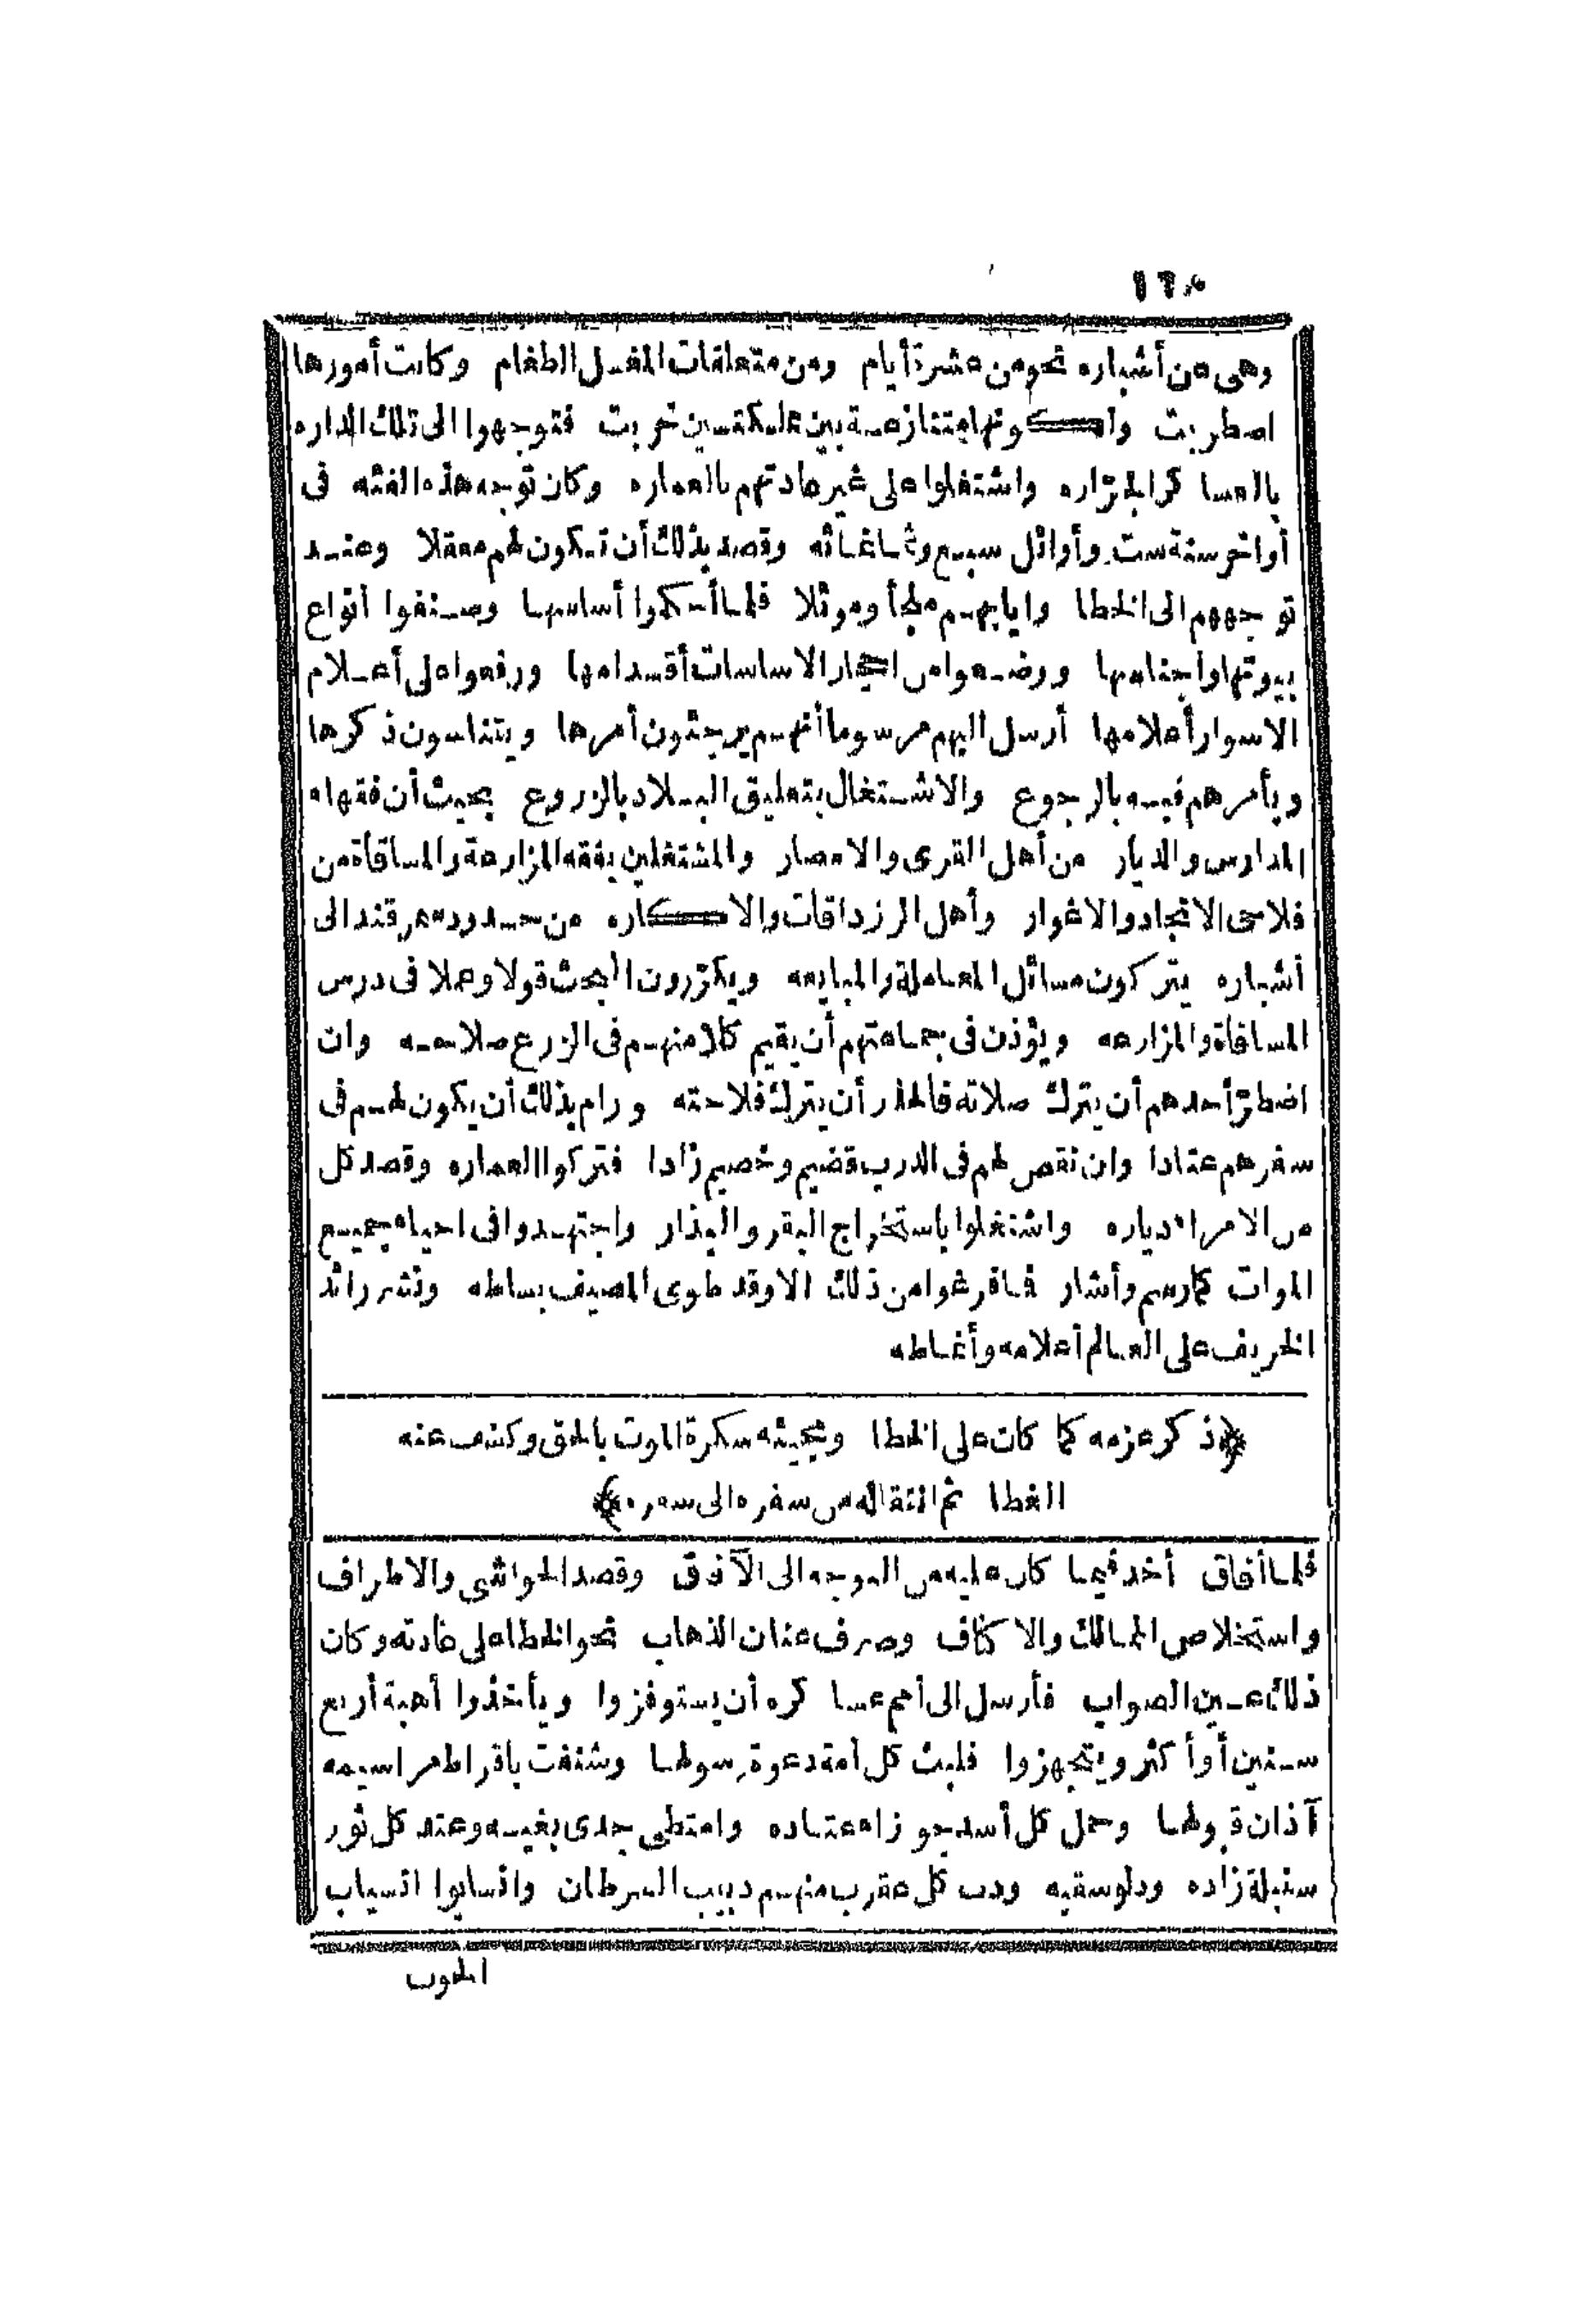 ١٦٠
وهى من أشباره نحو من عشرة أيام ومن متعلقات المغل الطغام وكانت أمورها
اضطربت ولكونها متنازعة بين مملكتين خربت فتوجهوا الى تلك الداره
بالعساكر الجراره واشتغلوا على غير عادتهم بالعماره وكان توجه هذه الفئه فى
أواخر سنة ست وأوائل سبع وثمانمائه وقصد بذلك أن تكون لهم معقلا وعند
توجههم الى الخطا وايابهم ملجأ وموئلا فلما أحكموا أساسها وصنفوا أنواع
بيوتها وأجناسها ووضعوا من أحجار الاساسات أقدامها ورفعوا على أعلام
الاسوار أعلامها أرسل اليهم مرسوما أنهم يرجئون أمرها ويتناسون ذكرها
ويأمرهم فيه بالرجوع والاشتغال بتعليق البلاد بالزروع بحيث أن فقهاء
المدارس والديار من أهل القرى والامصار والمشتغلين بفقه المزارعة والمساقاة من
فلاحى الانجاد والاغوار وأهل الرزداقات والاكاره من حدود سمرقند الى
أشباره يتركون مسائل المعاملة والمبايعه ويكرّرون البحث قولا وعملا فى درس
المساقاة والمزارعه ويؤذن فى جماعتهم أن يقيم كلا منهم فى الزرع صلاحه وان
اضطرّ أحدهم أن يترك صلاته فالحذر أن يترك فلاحته ورام بذلك أن يكون لهم فى
سفرهم عتادا وان نقص لهم فى الدرب قضيم وخضيم زادا فتركوا العماره وقصد كل
من الامراء دياره واشتغلوا باستخراج البقر والبذار واجتهدوا فى احياء جميع
الموات كما رسم وأشار فما فرغوا من ذلك الا وقد طوى المصيف بساطه ونشر رائد
الخريف على العالم أعلامه وأنماطه
﴿ذكر عزمه كما كان على الخطا ومجيئه سكرة الموت بالحق وكشف عنه
الغطا ثم انتقاله من سفره الى سقره﴾
فلما أفاق أخذ فيما كان عليه من التوجه الى الآفاق وقصد الحواشى والاطراف
واستخلاص الممالك والاكناف وصرف عنان الذهاب نحو الخطا على عادته وكان
ذلك عين الصواب فأرسل الى أمم عساكره أن يستوفزوا ويأخذوا أهبة أربع
سنين أو أكثر ويتجهزوا فلبت كل أمة دعوة رسولها وشنفت بأقراط مراسيمه
آذان قبولها وحمل كل أسد جوزاء عتاده وامتطى جدى بغيه وعند كل ثور
سنبلة زاده ودلو سقيه ودب كل عقرب منهم دبيب السرطان وانسابوا انسياب
الحوت